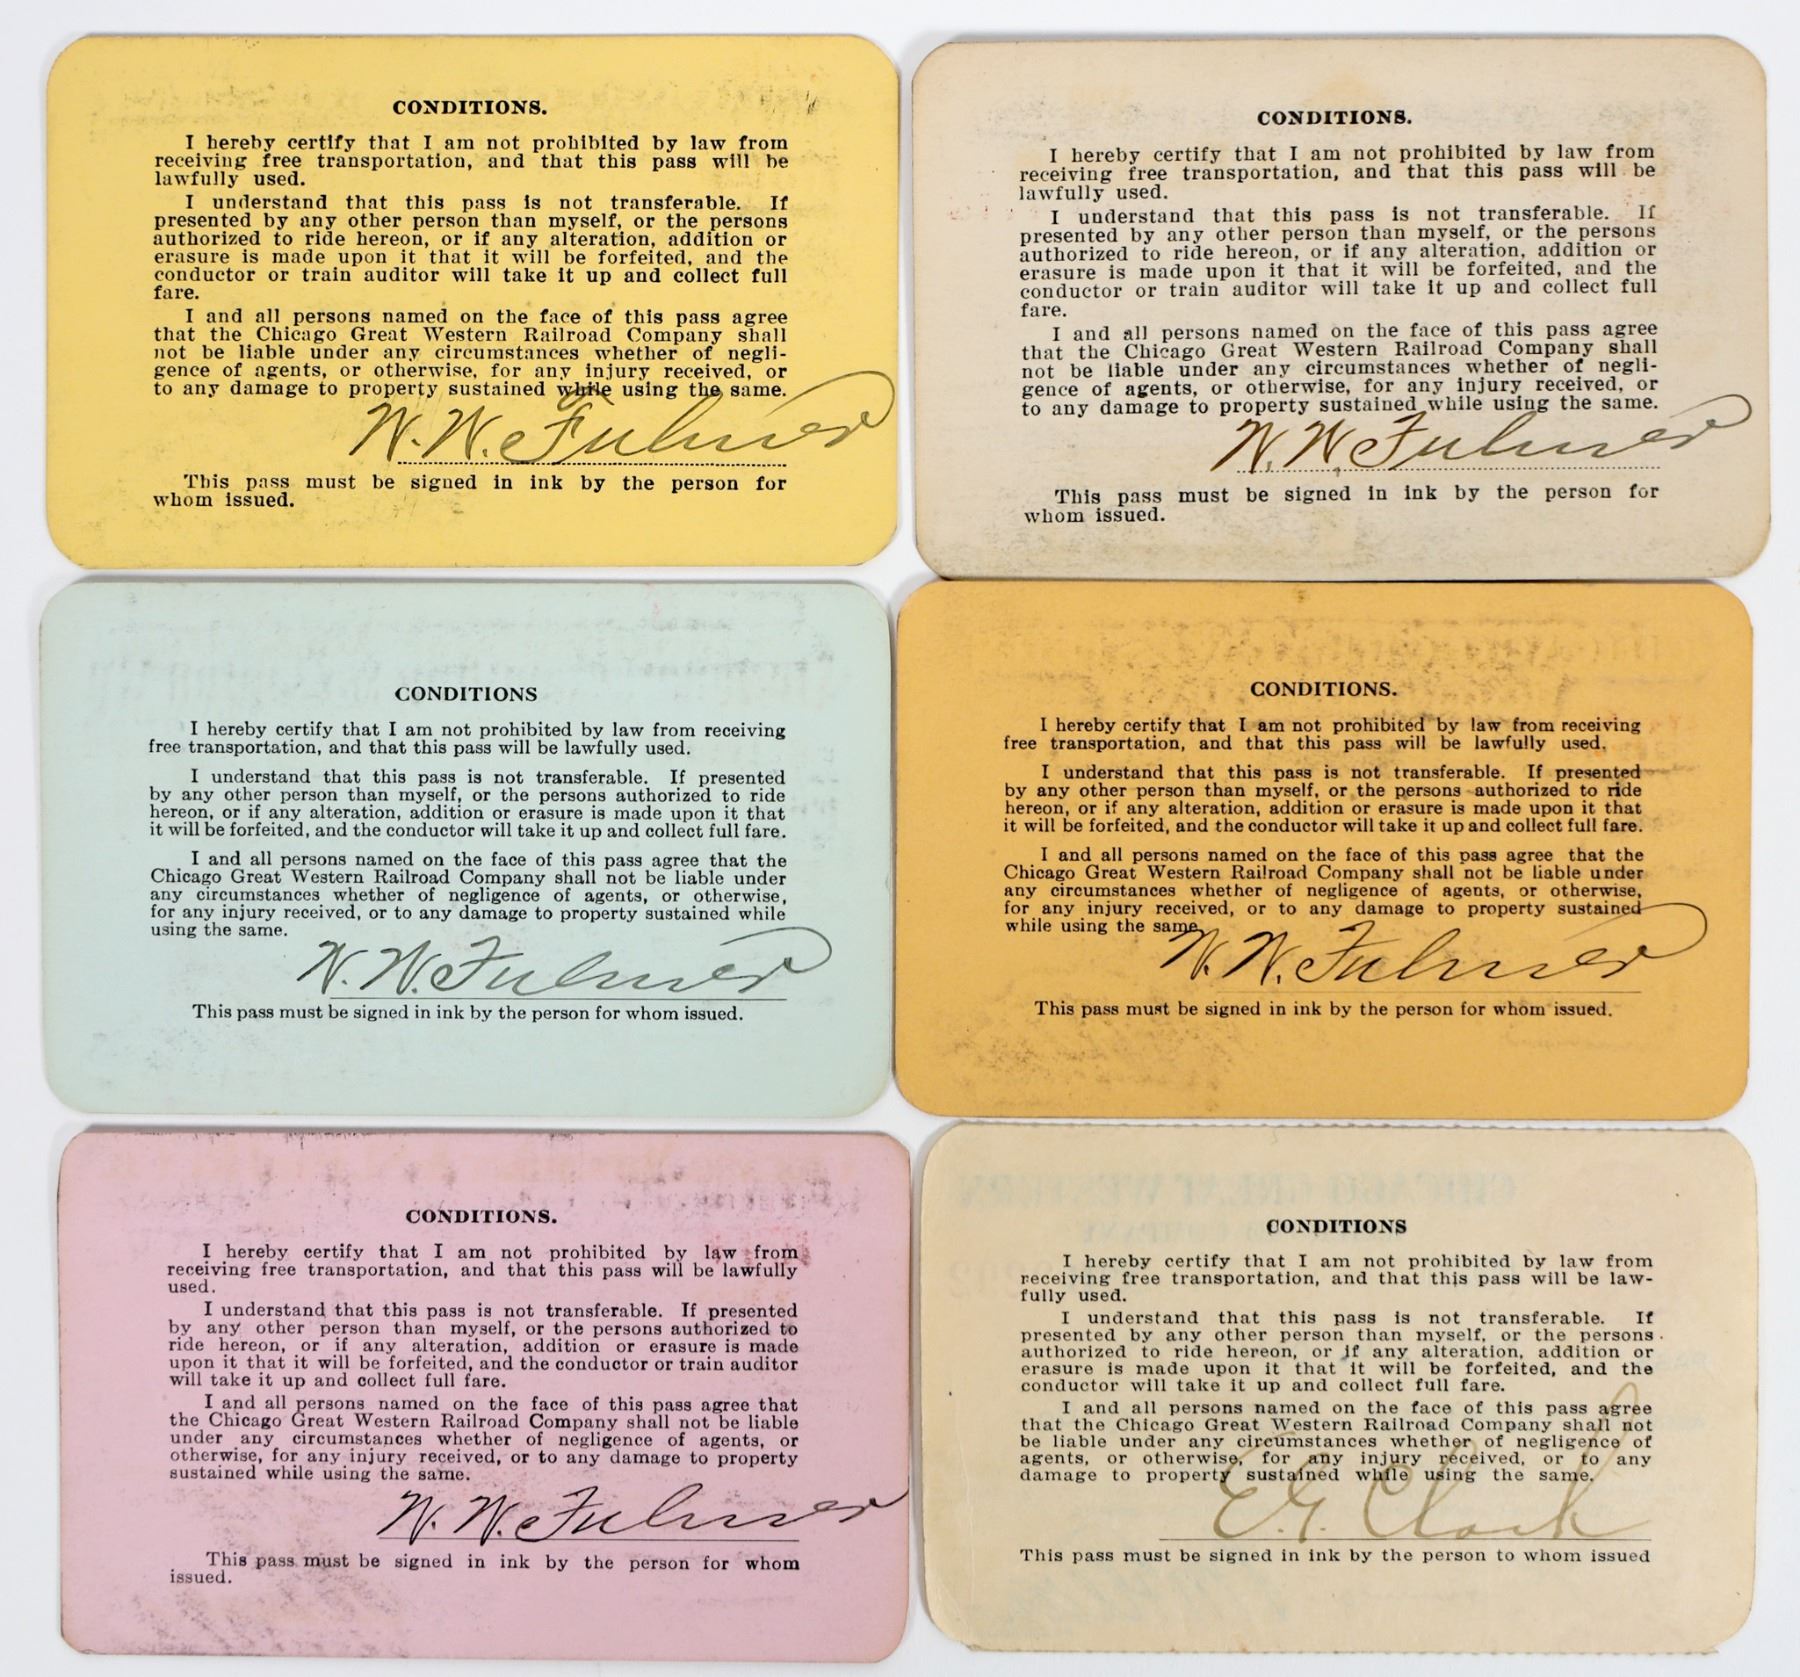 CONDITIONS.
I hereby certify that I am not prohibited by law from
receiving free transportation, and that this pass will be
lawfully used.
I understand that this pass is not transferable. If
presented by any other person than myself, or the persons
authorized to ride hereon, or if any alteration, addition or
erasure is made upon it that it will be forfeited, and the
conductor or train auditor will take it up and collect full
fare.
I and all persons named on the face of this pass agree
that the Chicago Great Western Railroad Company shall
not be liable under any circumstances whether of negli-
gence of agents, or otherwise, for any injury received, or
to any damage to property sustained while using the same.
W. W. Fulmer
This pass must be signed in ink by the person for
whom issued.
CONDITIONS.
I hereby certify that I am not prohibited by law from
receiving free transportation, and that this pass will be
lawfully used.
I understand that this pass is not transferable. If
presented by any other person than myself, or the persons
authorized to ride hereon, or if any alteration, addition or
erasure is made upon it that it will be forfeited, and the
conductor or train auditor will take it up and collect full
fare.
I and all persons named on the face of this pass agree
that the Chicago Great Western Railroad Company shall
not be liable under any circumstances whether of negli-
gence of agents, or otherwise, for any injury received, or
to any damage to property sustained while using the same.
W. W. Fulmer
This pass must be signed in ink by the person for
whom issued.
CONDITIONS
I hereby certify that I am not prohibited by law from receiving
free transportation, and that this pass will be lawfully used.
I understand that this pass is not transferable. If presented
by any other person than myself, or the persons authorized to ride
hereon, or if any alteration, addition or erasure is made upon it that
it will be forfeited, and the conductor will take it up and collect full fare.
I and all persons named on the face of this pass agree that the
Chicago Great Western Railroad Company shall not be liable under
any circumstances whether of negligence of agents, or otherwise,
for any injury received, or to any damage to property sustained while
using the same.
W. W. Fulmer
This pass must be signed in ink by the person for whom issued.
CONDITIONS.
I hereby certify that I am not prohibited by law from receiving
free transportation, and that this pass will be lawfully used.
I understand that this pass is not transferable. If presented
by any other person than myself, or the persons authorized to ride
hereon, or if any alteration, addition or erasure is made upon it that
it will be forfeited, and the conductor will take it up and collect full fare.
I and all persons named on the face of this pass agree that the
Chicago Great Western Railroad Company shall not be liable under
any circumstances whether of negligence of agents, or otherwise,
for any injury received, or to any damage to property sustained
while using the same.
W. W. Fulmer
This pass must be signed in ink by the person for whom issued.
CONDITIONS.
I hereby certify that I am not prohibited by law from
receiving free transportation, and that this pass will be lawfully
used.
I understand that this pass is not transferable. If presented
by any other person than myself, or the persons authorized to
ride hereon, or if any alteration, addition or erasure is made
upon it that it will be forfeited, and the conductor or train auditor
will take it up and collect full fare.
I and all persons named on the face of this pass agree that
the Chicago Great Western Railroad Company shall not be liable
under any circumstances whether of negligence of agents, or
otherwise, for any injury received, or to any damage to property
sustained while using the same.
W. W. Fulmer
This pass must be signed in ink by the person for whom
issued.
CONDITIONS
I hereby certify that I am not prohibited by law from
receiving free transportation, and that this pass will be law-
fully used.
I understand that this pass is not transferable. If
presented by any other person than myself, or the persons
authorized to ride hereon, or if any alteration, addition or
erasure is made upon it that it will be forfeited, and the
conductor will take it up and collect full fare.
I and all persons named on the face of this pass agree
that the Chicago Great Western Railroad Company shall not
be liable under any circumstances whether of negligence of
agents, or otherwise, for any injury received, or to any
damage to property sustained while using the same.
E. G. Clark
This pass must be signed in ink by the person to whom issued